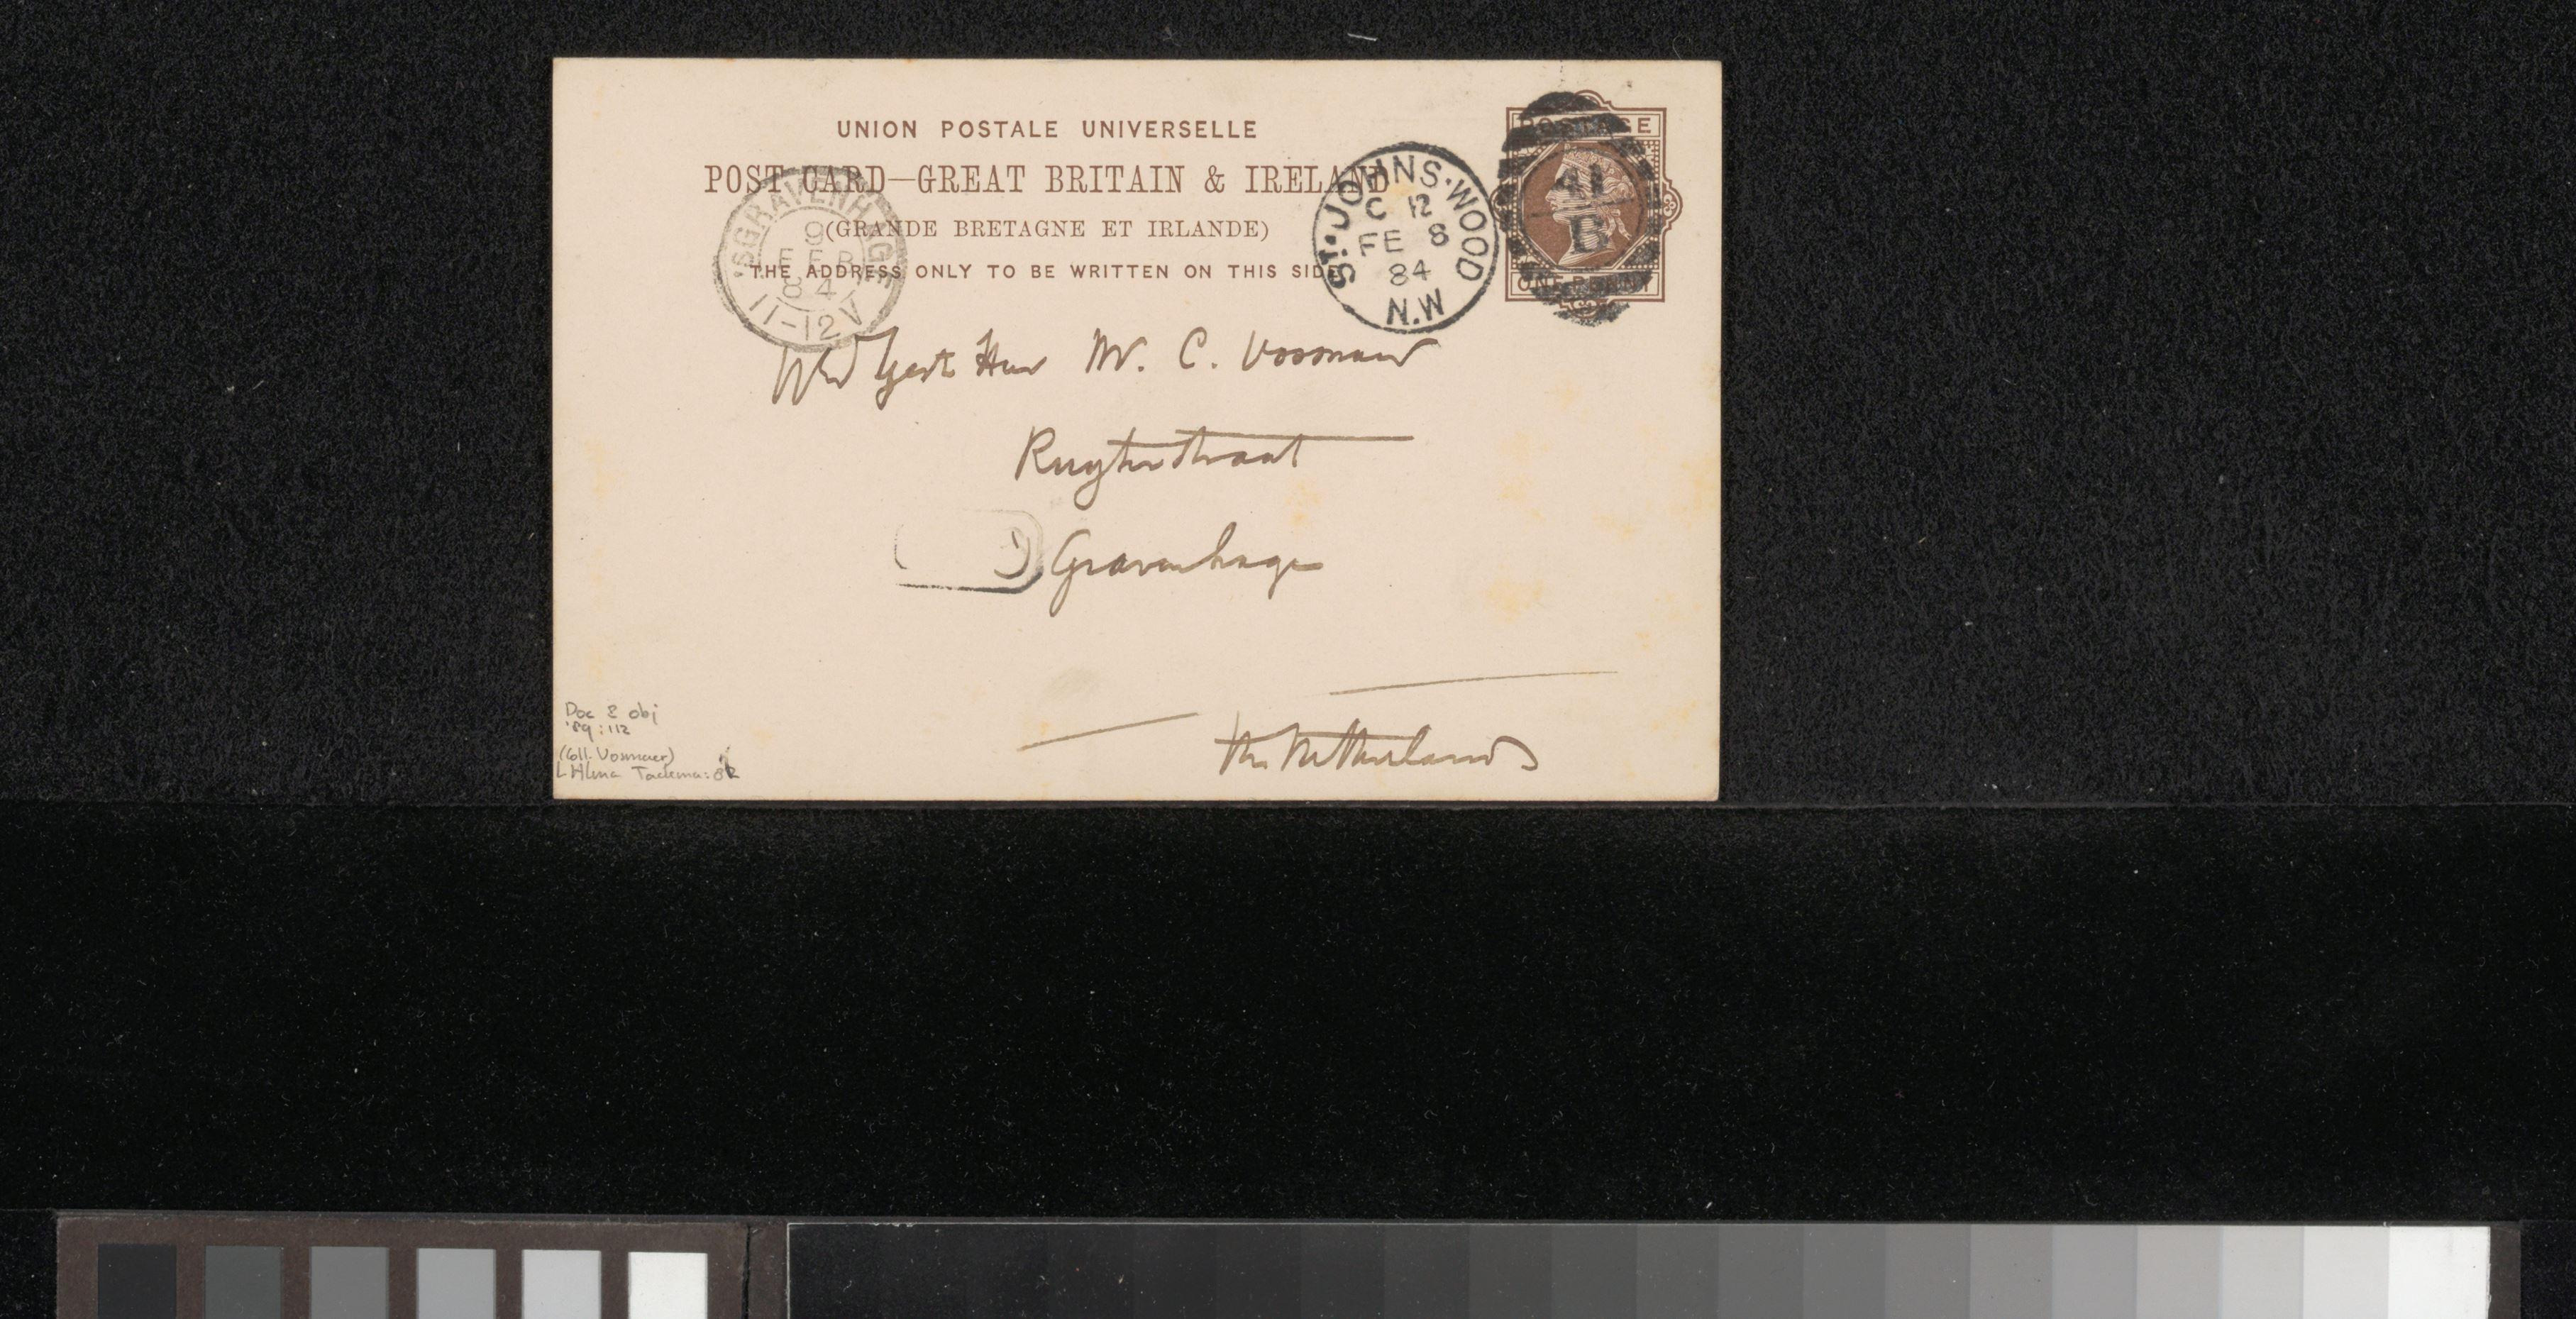 UNION POSTALE UNIVERSELLE
POST CARD—GREAT BRITAIN & IRELAND
(GRANDE BRETAGNE ET IRLANDE)
THE ADDRESS ONLY TO BE WRITTEN ON THIS SIDE
'SGRAVENHAGE
9
FEB
84
11-12V
ST. JOHNS. WOOD
C 12
FE 8
84
N.W
POSTAGE
41
B
ONE PENNY
Heer Mr. C. Vosmaer
Ruyterstraat
Gravenhage
The Netherlands
Doc 2 obj
'89:112
(Coll. Vosmaer)
L Alma Tadema: